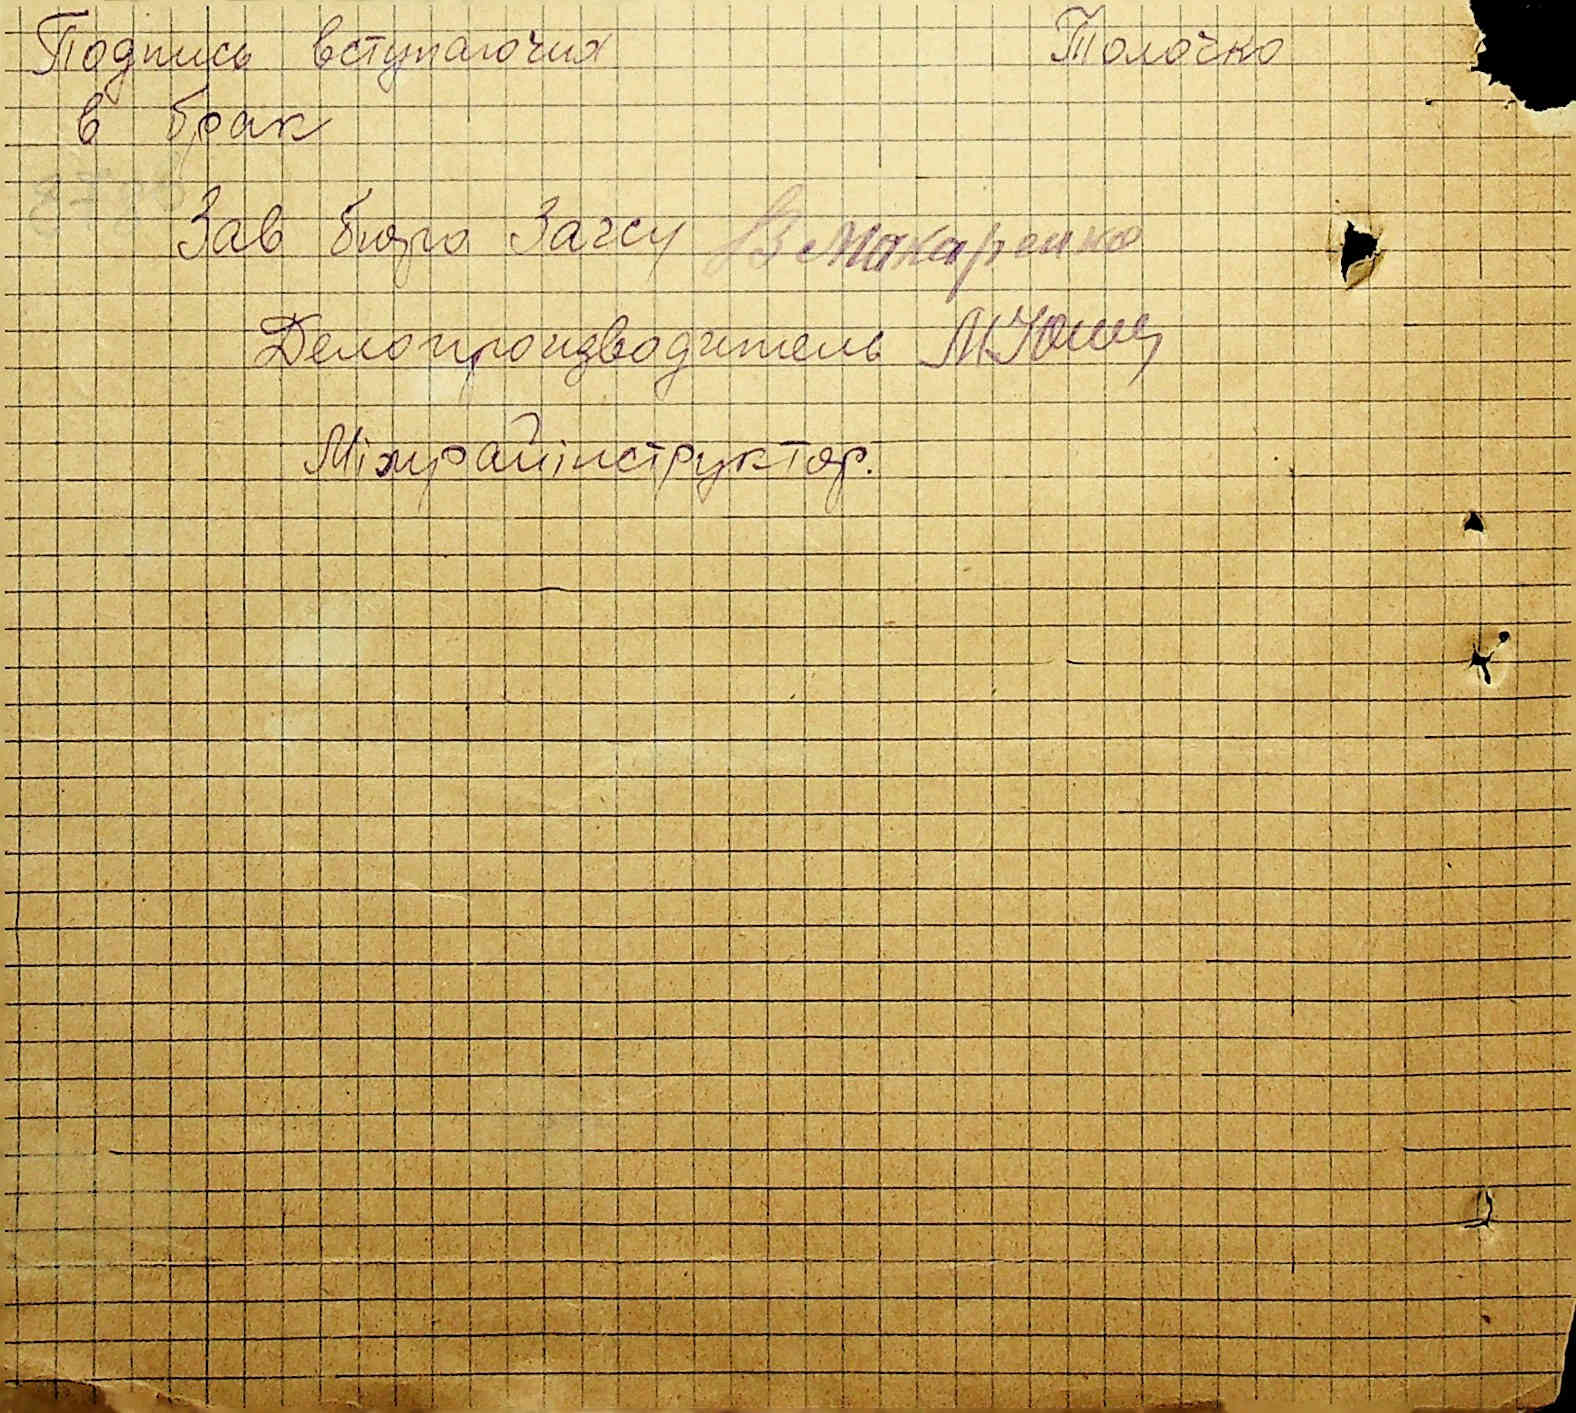 Подпись вступаючих Толочко
в брак
Зав бюро Загсу В Макаренко
Делопроизводитель
Міжрайінструктор.